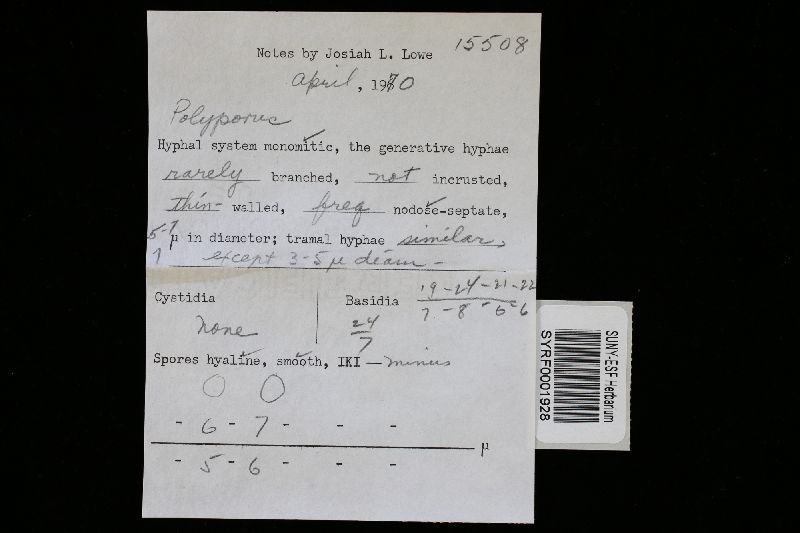 15508
Notes by Josiah L. Lowe
April, 1970
Polyporus
Hyphal system monomitic, the generative hyphae
rarely branched, not incrusted,
thin- walled, freq nodose-septate,
5-7 µ in diameter; tramal hyphae similar,
except 3-5 µ diam -
Cystidia
none
Basidia
24
7
19-24-21-22
7-8-6-6
Spores hyaline, smooth, IKI — minus
- 6 - 7 - - -
µ
- 5 - 6 - - -
SUNY-ESF Herbarium
SYRF0001928